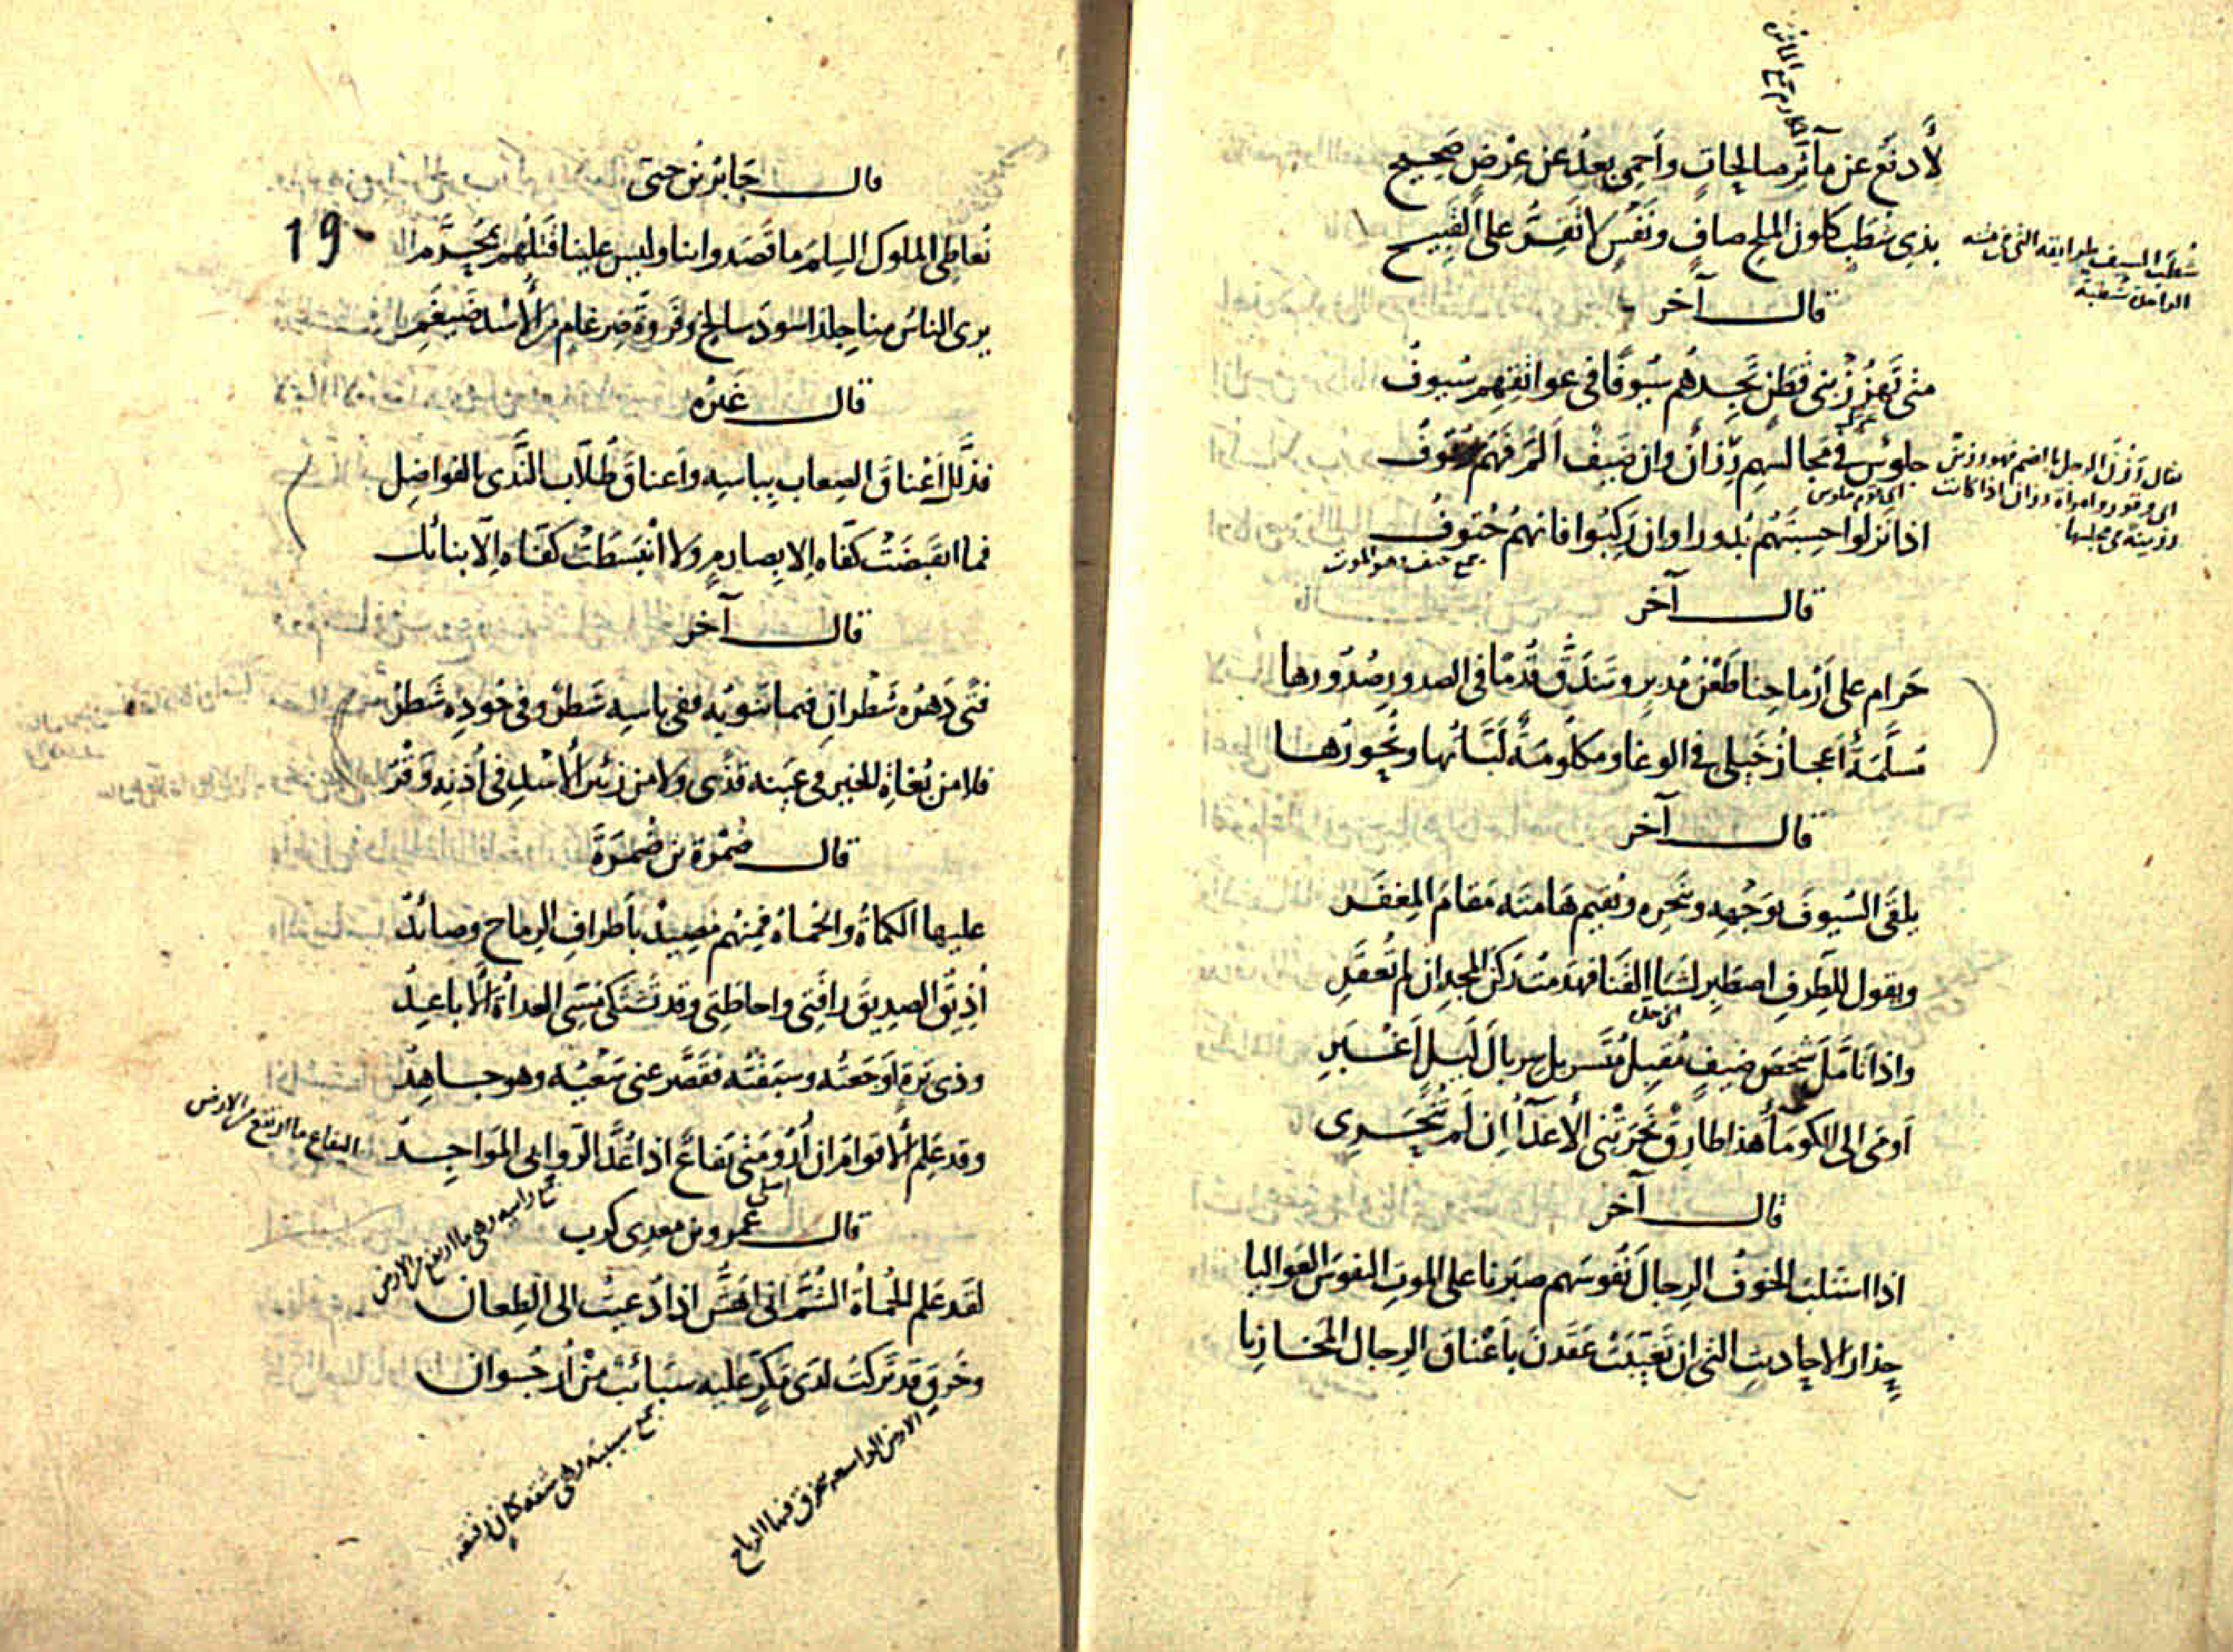 لأدفع عن مآثر صالحات وأحمي بعد عن عرض صحيح
بذي شطب كلون الملح صاف ونفس لا تقر على القبيح
شطب السيف طرايقه التي في متنه
الواحدة شطبة
قال آخر
متى تهزز بني قطن تجدهم سيوفا في عواتقهم سيوف
جلوس في مجالسهم رزان وان ضيف ألم فهم وقوف
يقال رزن الرجل بالضم فهو رزين
اى وقور وامراة رزان اذا كانت
رزينة في مجلسها
اذا نزلوا حسبتهم بدورا وان ركبوا فانهم حتوف
جمع حتف وهو الموت
قال آخر
حرام على أرماحنا طعن مدبر وتندق قدما في الصدور صدورها
مسلمة أعجاز خيلي في الوغا ومكلومة لباتها ونحورها
قال آخر
يلقى السيوف بوجهه وبنحره ويقيم هامته مقام المغفر
ويقول للطرف اصطبر لشبا القنا فهدمت ركن المجد ان لم تعقر
واذا تأمل شخص ضيف مقبل متسربل سربال ليل أغبر
أومى الى الكوماء هذا طارق نحرتني الأعداء ان لم تنحري
قال آخر
اذا استلب الخوف الرجال نفوسهم صبرنا على الموت النفوس الغواليا
حذار الاحاديث التي ان تعيبت عقدن بأعناق الرجال المخازيا
قال جابر بن حنى
19
نعاطي الملوك السلم ما قصدوا بنا وليس علينا قتلهم بمحرم
يرى الناس منا جلد اسود سالخ وفروة ضرغام من الأسد ضيغم
قال غيره
فذلل أعناق الصعاب بباسه وأعناق طلاب الندى بالفواضل
فما انقبضت كفاه الا بصارم ولا انبسطت كفاه الا بنائل
قال آخر
فتى دهره شطران فيما ينوبه ففي باسه شطر وفي جوده شطر
فلا من بغاة الخير في عينه قذى ولا من زئير الأسد في أذنه وقر
قال ضمرة بن ضمرة
عليها الكماة والحماة فمنهم مصيد بأطراف الرماح وصائد
أذيق الصديق رافتي واحاطتي وقد تشتكي مني العداة الأباعد
وذي ترة أوجعته وسبقته فقصر عني سعيه وهو جاهد
وقد علم الأقوام ان أرومتي يفاع اذا عد الروابي المواجد
اليفاع ما ارتفع من الارض
قال عمرو بن معدي كرب
لقد علم الحماة الشم اني أهش اذا دعيت الى الطعان
وخرق قد تركت لدى مكر عليه سبائب مثل أرجوان
الارض الواسعه تنخرق فيها الرياح